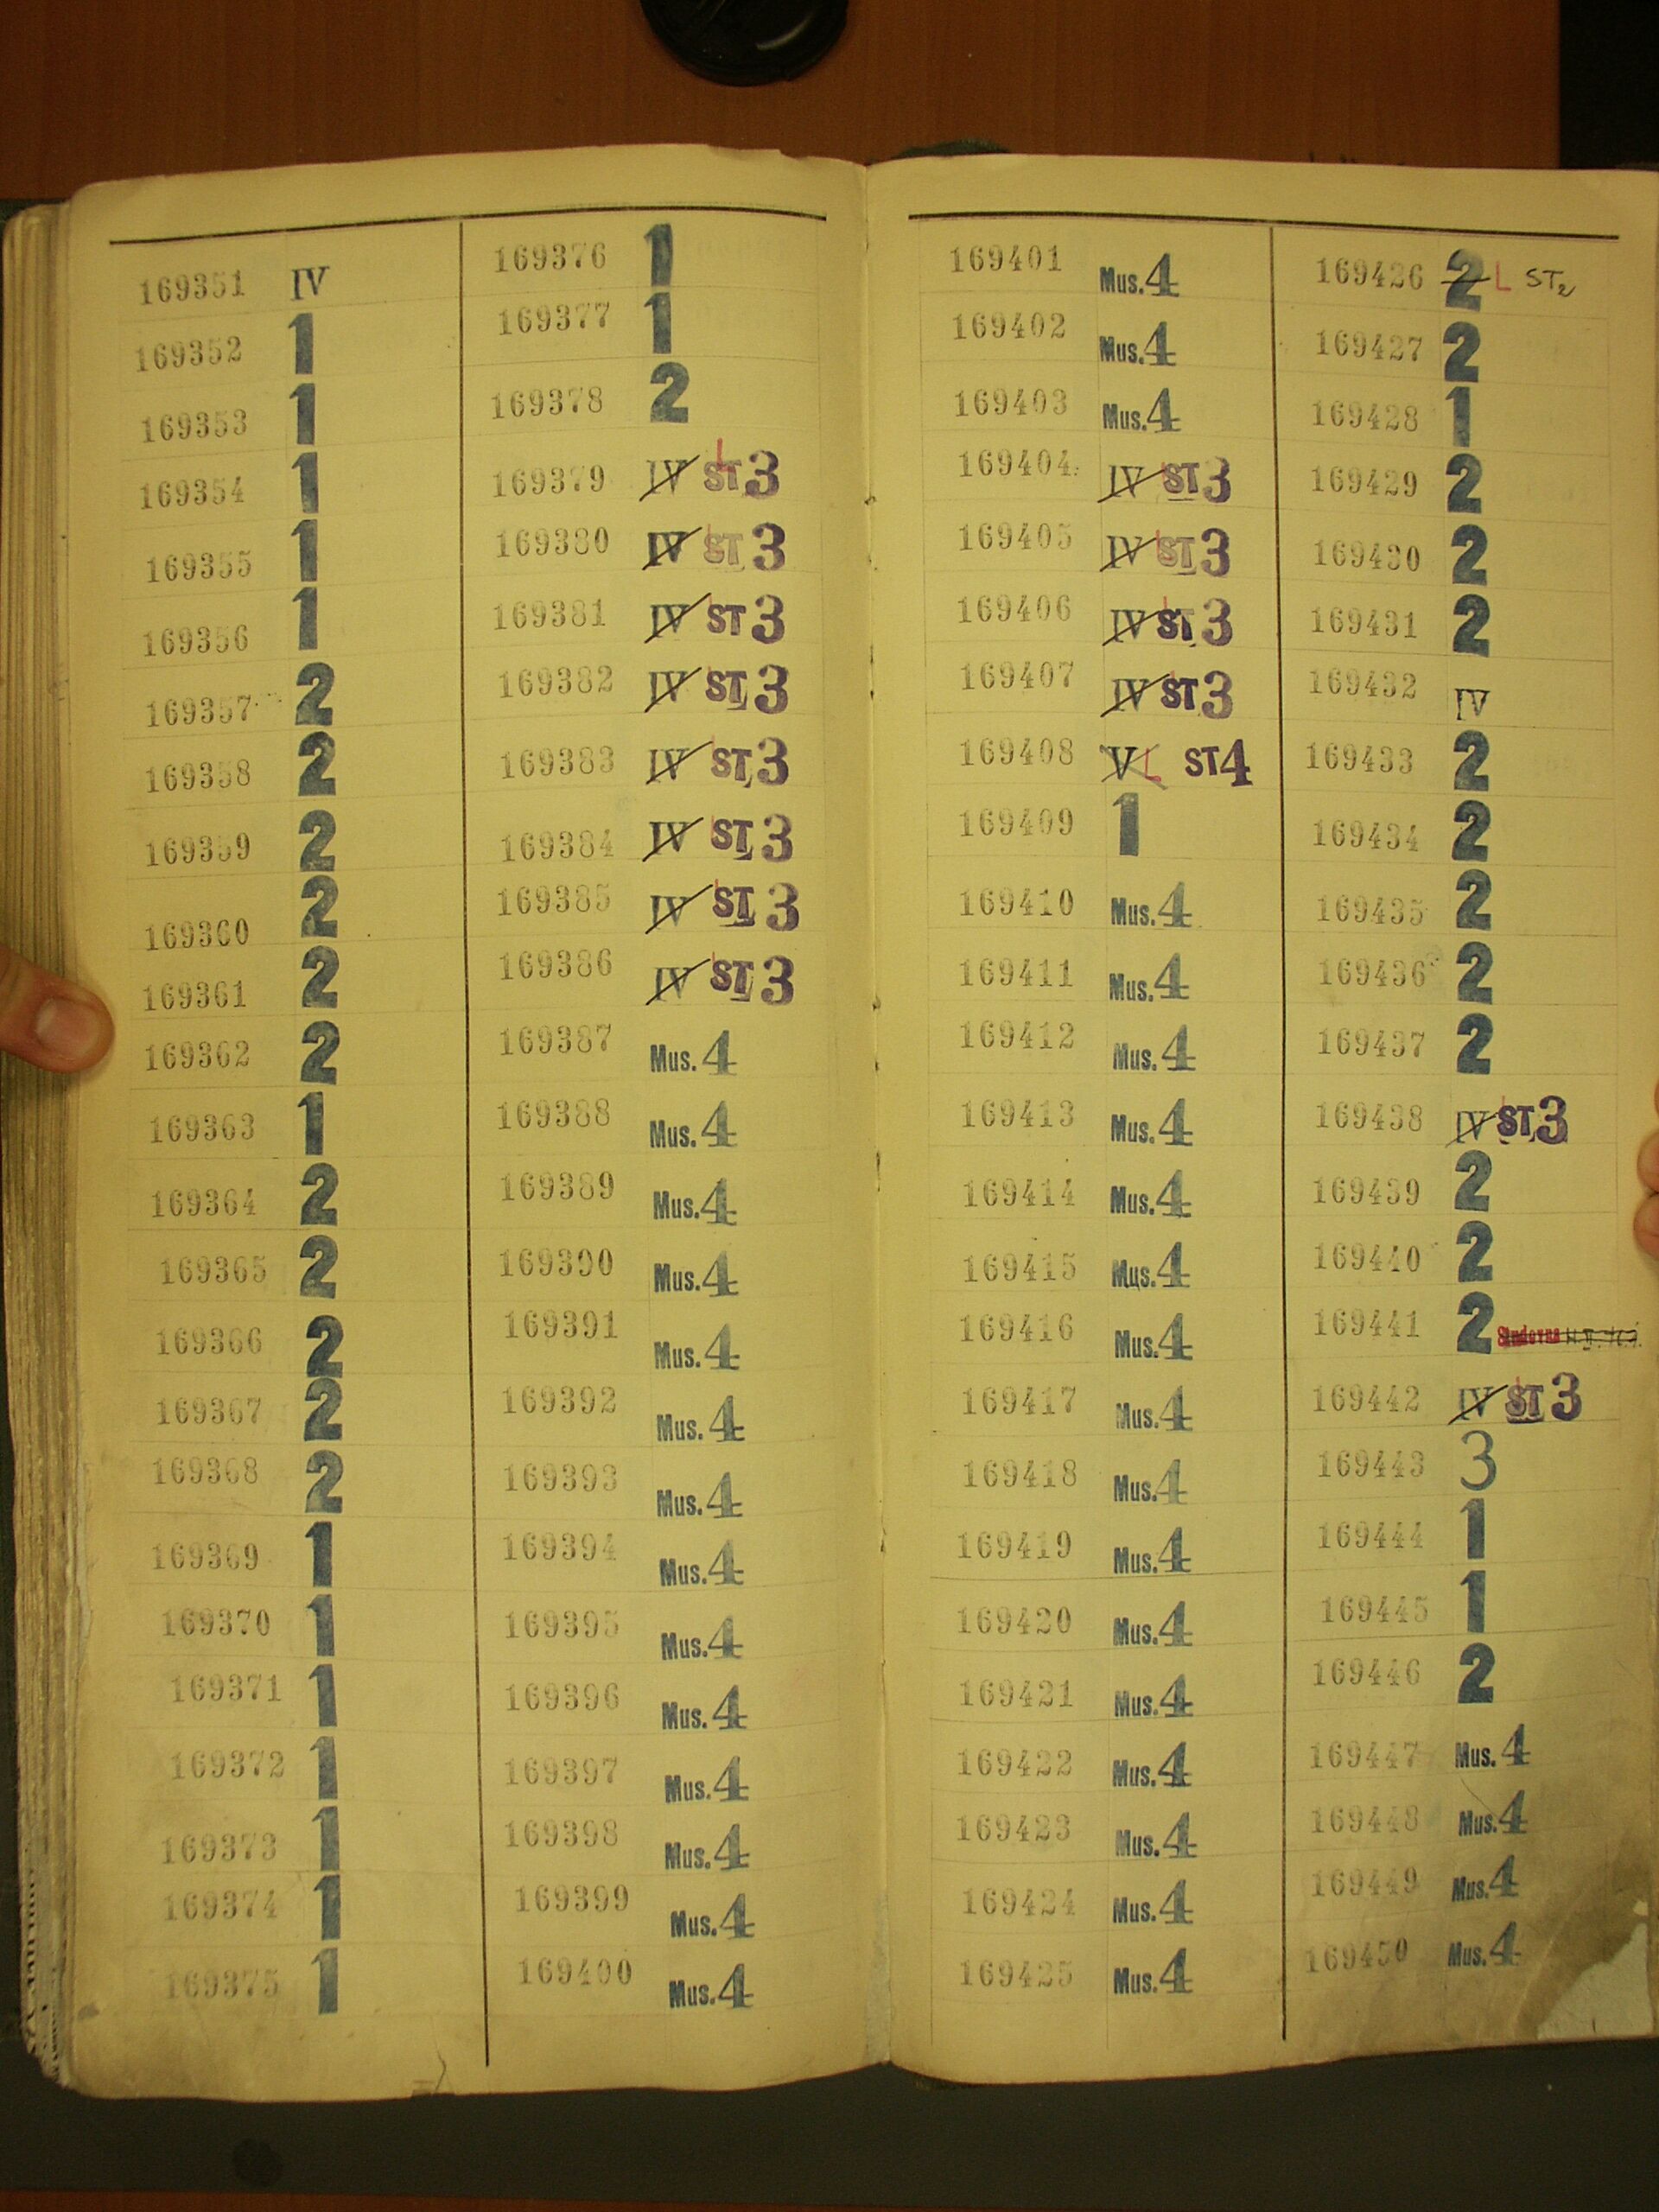 169351 IV
169352 1
169353 1
169354 1
169355 1
169356 1
169357 2
169358 2
169359 2
169360 2
169361 2
169362 2
169363 1
169364 2
169365 2
169366 2
169367 2
169368 2
169369 1
169370 1
169371 1
169372 1
169373 1
169374 1
169375 1
169376 1
169377 1
169378 2
169379 IV L ST 3
169380 IV L ST 3
169381 IV L ST 3
169382 IV L ST 3
169383 IV L ST 3
169384 IV L ST 3
169385 IV L ST 3
169386 IV L ST 3
169387 Mus. 4
169388 Mus. 4
169389 Mus. 4
169390 Mus. 4
169391 Mus. 4
169392 Mus. 4
169393 Mus. 4
169394 Mus. 4
169395 Mus. 4
169396 Mus. 4
169397 Mus. 4
169398 Mus. 4
169399 Mus. 4
169400 Mus. 4
169401 Mus. 4
169402 Mus. 4
169403 Mus. 4
169404 IV L ST 3
169405 IV L ST 3
169406 IV L ST 3
169407 IV L ST 3
169408 V L ST 4
169409 1
169410 Mus. 4
169411 Mus. 4
169412 Mus. 4
169413 Mus. 4
169414 Mus. 4
169415 Mus. 4
169416 Mus. 4
169417 Mus. 4
169418 Mus. 4
169419 Mus. 4
169420 Mus. 4
169421 Mus. 4
169422 Mus. 4
169423 Mus. 4
169424 Mus. 4
169425 Mus. 4
169426 2 L ST2
169427 2
169428 1
169429 2
169430 2
169431 2
169432 IV
169433 2
169434 2
169435 2
169436 2
169437 2
169438 IV L ST 3
169439 2
169440 2
169441 2
169442 IV L ST 3
169443 3
169444 1
169445 1
169446 2
169447 Mus. 4
169448 Mus. 4
169449 Mus. 4
169450 Mus. 4